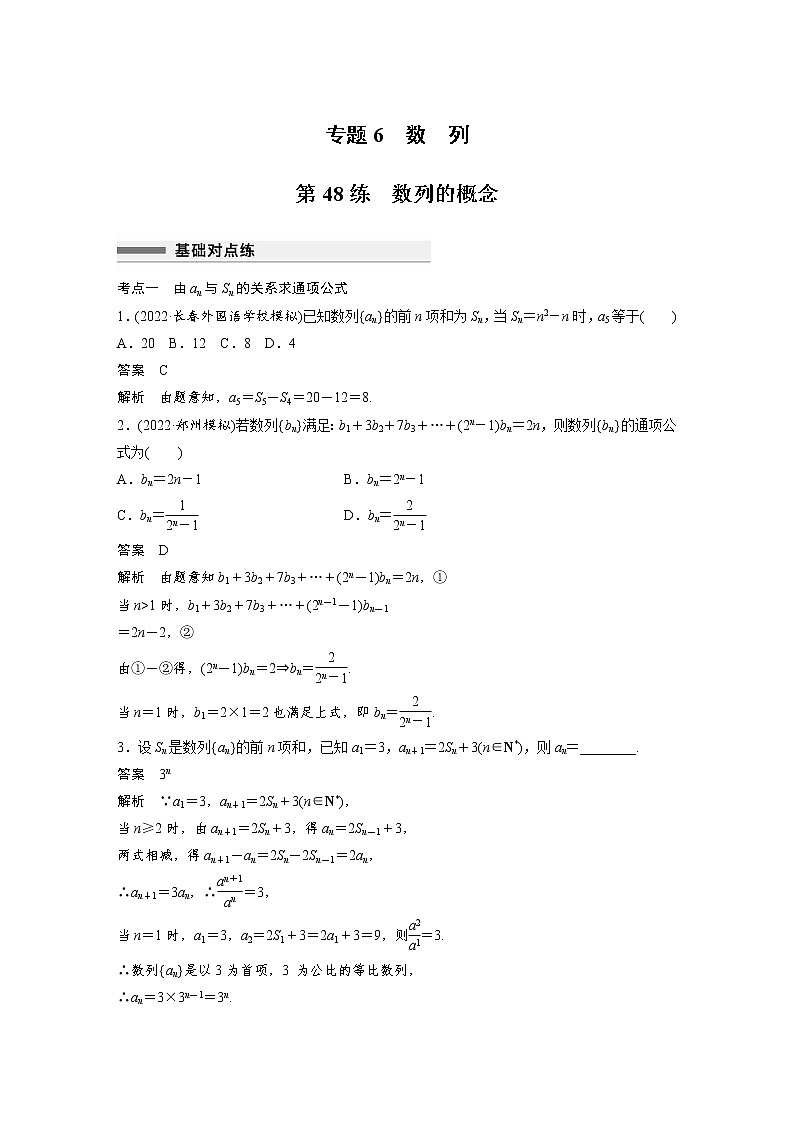 专题6 数 列
第48练 数列的概念
基础对点练
考点一 由aₙ与Sₙ的关系求通项公式
1.(2022·长春外国语学校模拟)已知数列{aₙ}的前n项和为Sₙ,当Sₙ=n²-n时,a₅等于( )
A.20 B.12 C.8 D.4
答案 C
解析 由题意知,a₅=S₅-S₄=20-12=8.
2.(2022·郑州模拟)若数列{bₙ}满足:b₁+3b₂+7b₃+…+(2ⁿ-1)bₙ=2n,则数列{bₙ}的通项公
式为( )
A.bₙ=2n-1 B.bₙ=2ⁿ-1
C.bₙ=1/(2ⁿ-1) D.bₙ=2/(2ⁿ-1)
答案 D
解析 由题意知b₁+3b₂+7b₃+…+(2ⁿ-1)bₙ=2n,①
当n>1时,b₁+3b₂+7b₃+…+(2ⁿ⁻¹-1)bₙ₋₁
=2n-2,②
由①-②得,(2ⁿ-1)bₙ=2⇒bₙ=2/(2ⁿ-1).
当n=1时,b₁=2×1=2也满足上式,即bₙ=2/(2ⁿ-1).
3.设Sₙ是数列{aₙ}的前n项和,已知a₁=3,aₙ₊₁=2Sₙ+3(n∈N*),则aₙ=________.
答案 3ⁿ
解析 ∵a₁=3,aₙ₊₁=2Sₙ+3(n∈N*),
当n≥2时,由aₙ₊₁=2Sₙ+3,得aₙ=2Sₙ₋₁+3,
两式相减,得aₙ₊₁-aₙ=2Sₙ-2Sₙ₋₁=2aₙ,
∴aₙ₊₁=3aₙ,∴aⁿ⁺¹/aⁿ=3,
当n=1时,a₁=3,a₂=2S₁+3=2a₁+3=9,则a²/a¹=3.
∴数列{aₙ}是以3为首项,3 为公比的等比数列,
∴aₙ=3×3ⁿ⁻¹=3ⁿ.